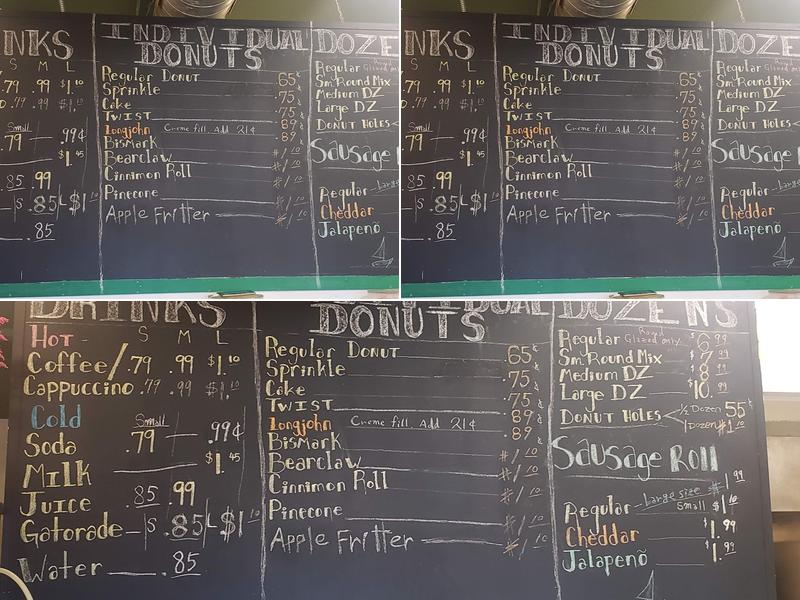 NKS
S M L
.79 .99 $1.10
.79 .99 $1.10
Small
.79 .99¢
$1.45
.85 .99
S .85 L $1.10
.85
INDIVIDUAL
DONUTS
Regular Donut .65¢
Sprinkle
Cake .75
Twist .75
Longjohn Creme fill, Add 21¢ .89
Bismark .89
Bearclaw $1.10
Cinnimon Roll $1.10
Pinecone $1.10
Apple Fritter $1.10
DOZE
Regular
Sm Round Mix
Medium DZ
Large DZ
Donut Holes
Sausage
Regular
Cheddar
Jalapeño
NKS
S M L
.79 .99 $1.10
.79 .99 $1.10
Small
.79 .99¢
$1.45
.85 .99
S .85 L $1.10
.85
INDIVIDUAL
DONUTS
Regular Donut .65¢
Sprinkle
Cake .75
Twist .75
Longjohn Creme fill, Add 21¢ .89
Bismark .89
Bearclaw $1.10
Cinnimon Roll $1.10
Pinecone $1.10
Apple Fritter $1.10
DOZE
Regular
Sm Round Mix
Medium DZ
Large DZ
Donut Holes
Sausage
Regular
Cheddar
Jalapeño
DRINKS
Hot S M L
Coffee/ .79 .99 $1.10
Cappuccino .79 .99 $1.10
Cold
Small
Soda .79 .99¢
Milk $1.45
Juice .85 .99
Gatorade S .85 L $1.10
Water .85
INDIVIDUAL
DONUTS
Regular Donut .65¢
Sprinkle
Cake .75
Twist .75
Longjohn Creme fill, Add 21¢ .89
Bismark .89
Bearclaw $1.10
Cinnimon Roll $1.10
Pinecone $1.10
Apple Fritter $1.10
DOZENS
Regular Round Glazed only $6.99
Sm Round Mix $7.99
Medium DZ $8.99
Large DZ $10.99
Donut Holes ½ Dozen 55¢
1 Dozen $1.10
Sausage Roll
Large size $1.99
Regular Small $1.10
Cheddar $1.99
Jalapenõ $1.99